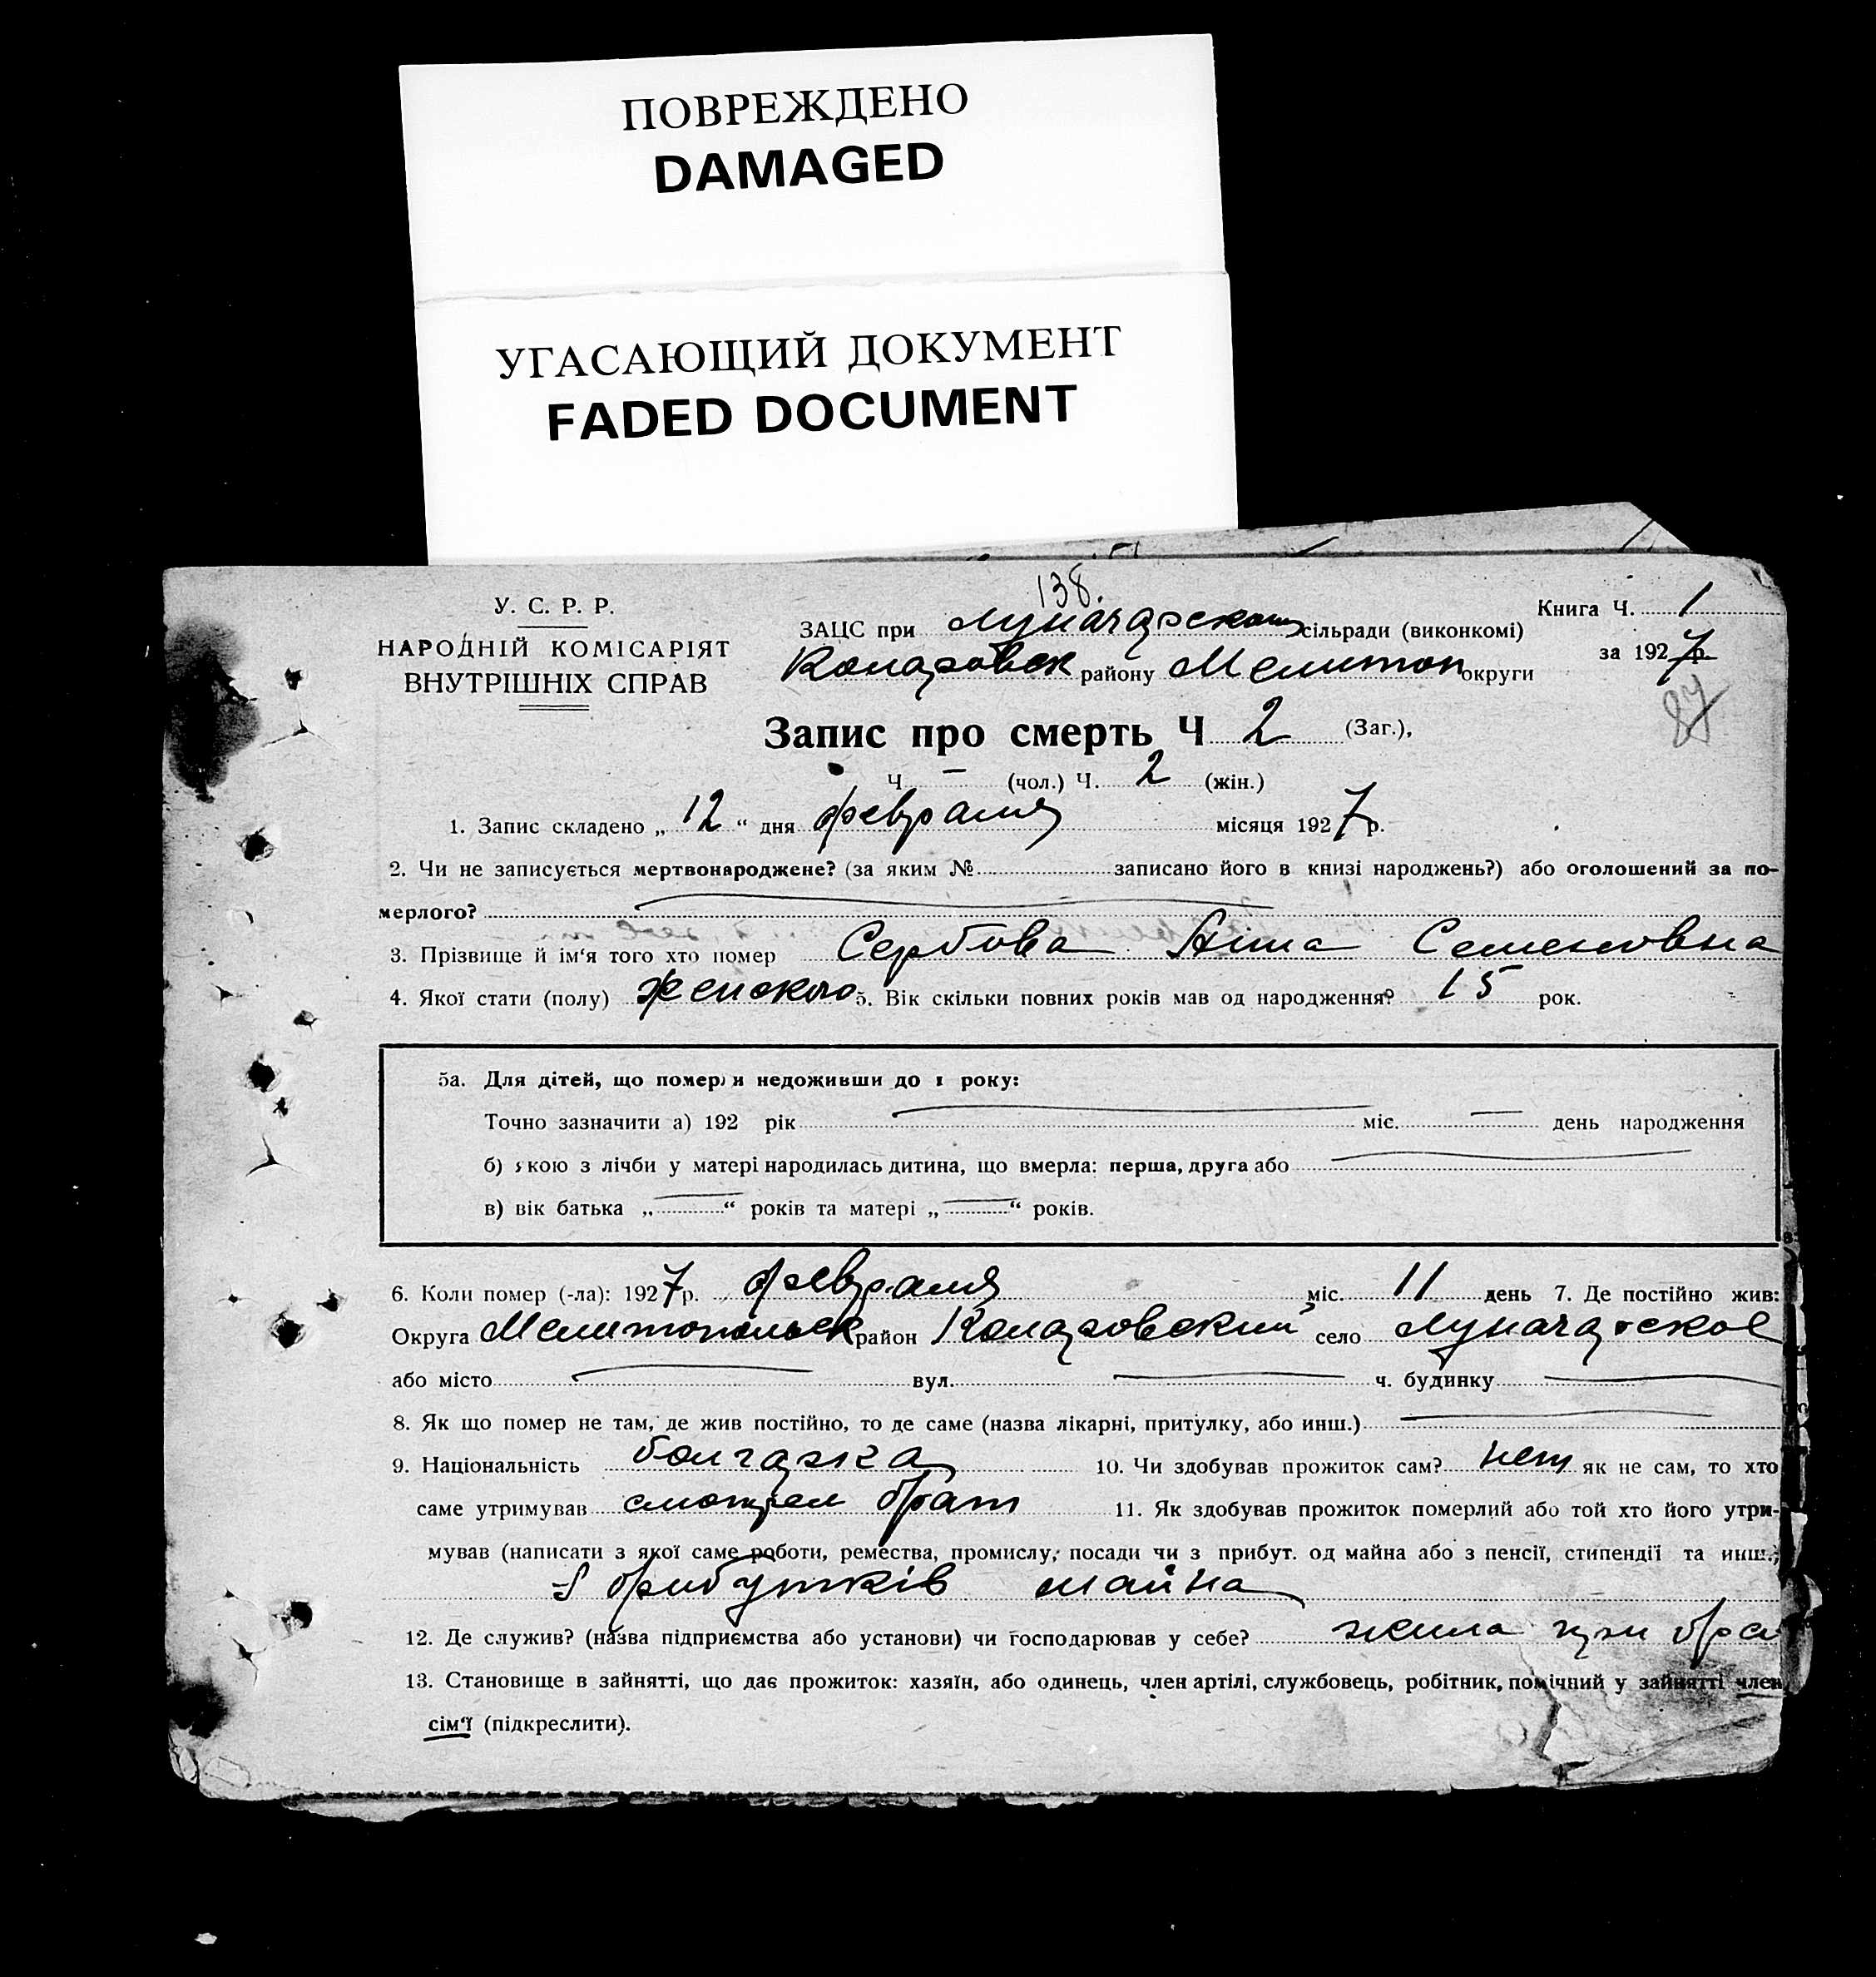 ПОВРЕЖДЕНО
DAMAGED
УГАСАЮЩИЙ ДОКУМЕНТ
FADED DOCUMENT
138.
У. С. Р. Р.
НАРОДНІЙ КОМІСАРІЯТ
ВНУТРІШНІХ СПРАВ
ЗАЦС при Луначарском сільради (виконкомі)
Коларовск району Мелитоп округи
Книга Ч. 1
за 1927 р.
87
Запис про смерть Ч 2 (Заг.),
Ч. — (чол.) Ч. 2 (жін.)
1. Запис складено „ 12 “ дня февраля місяця 1927 р.
2. Чи не записується мертвонароджене? (за яким № записано його в книзі народжень?) або оголошений за по-
мерлого?
3. Прізвище й ім'я того хто помер Сербова Анна Семеновна
4. Якої стати (полу) женского 5. Вік скільки повних років мав од народження? 15 рок.
5а. Для дітей, що померли недоживши до 1 року:
Точно зазначити а) 192 рік — міс. — день народження
б) якою з лічби у матері народилась дитина, що вмерла: перша, друга або —
в) вік батька „ — “ років та матері „ — “ років.
6. Коли помер (-ла): 1927 р. февраля міс. 11 день 7. Де постійно жив:
Округа Мелитопольск район Коларовский село Луначарское
або місто — вул. — ч. будинку —
8. Як що помер не там, де жив постійно, то де саме (назва лікарні, притулку, або инш.) —
9. Національність болгарка 10. Чи здобував прожиток сам? нет як не сам, то хто
саме утримував смотрел брат 11. Як здобував прожиток померлий або той хто його утри-
мував (написати з якої саме роботи, ремества, промислу, посади чи з прибут. од майна або з пенсії, стипендії та инш.)
з прибутків майна
12. Де служив? (назва підприємства або установи) чи господарював у себе? жила при бра
13. Становище в зайнятті, що дає прожиток: хазяїн, або одинець, член артілі, службовець, робітник, помічний у зайнятті член
сім'ї (підкреслити).